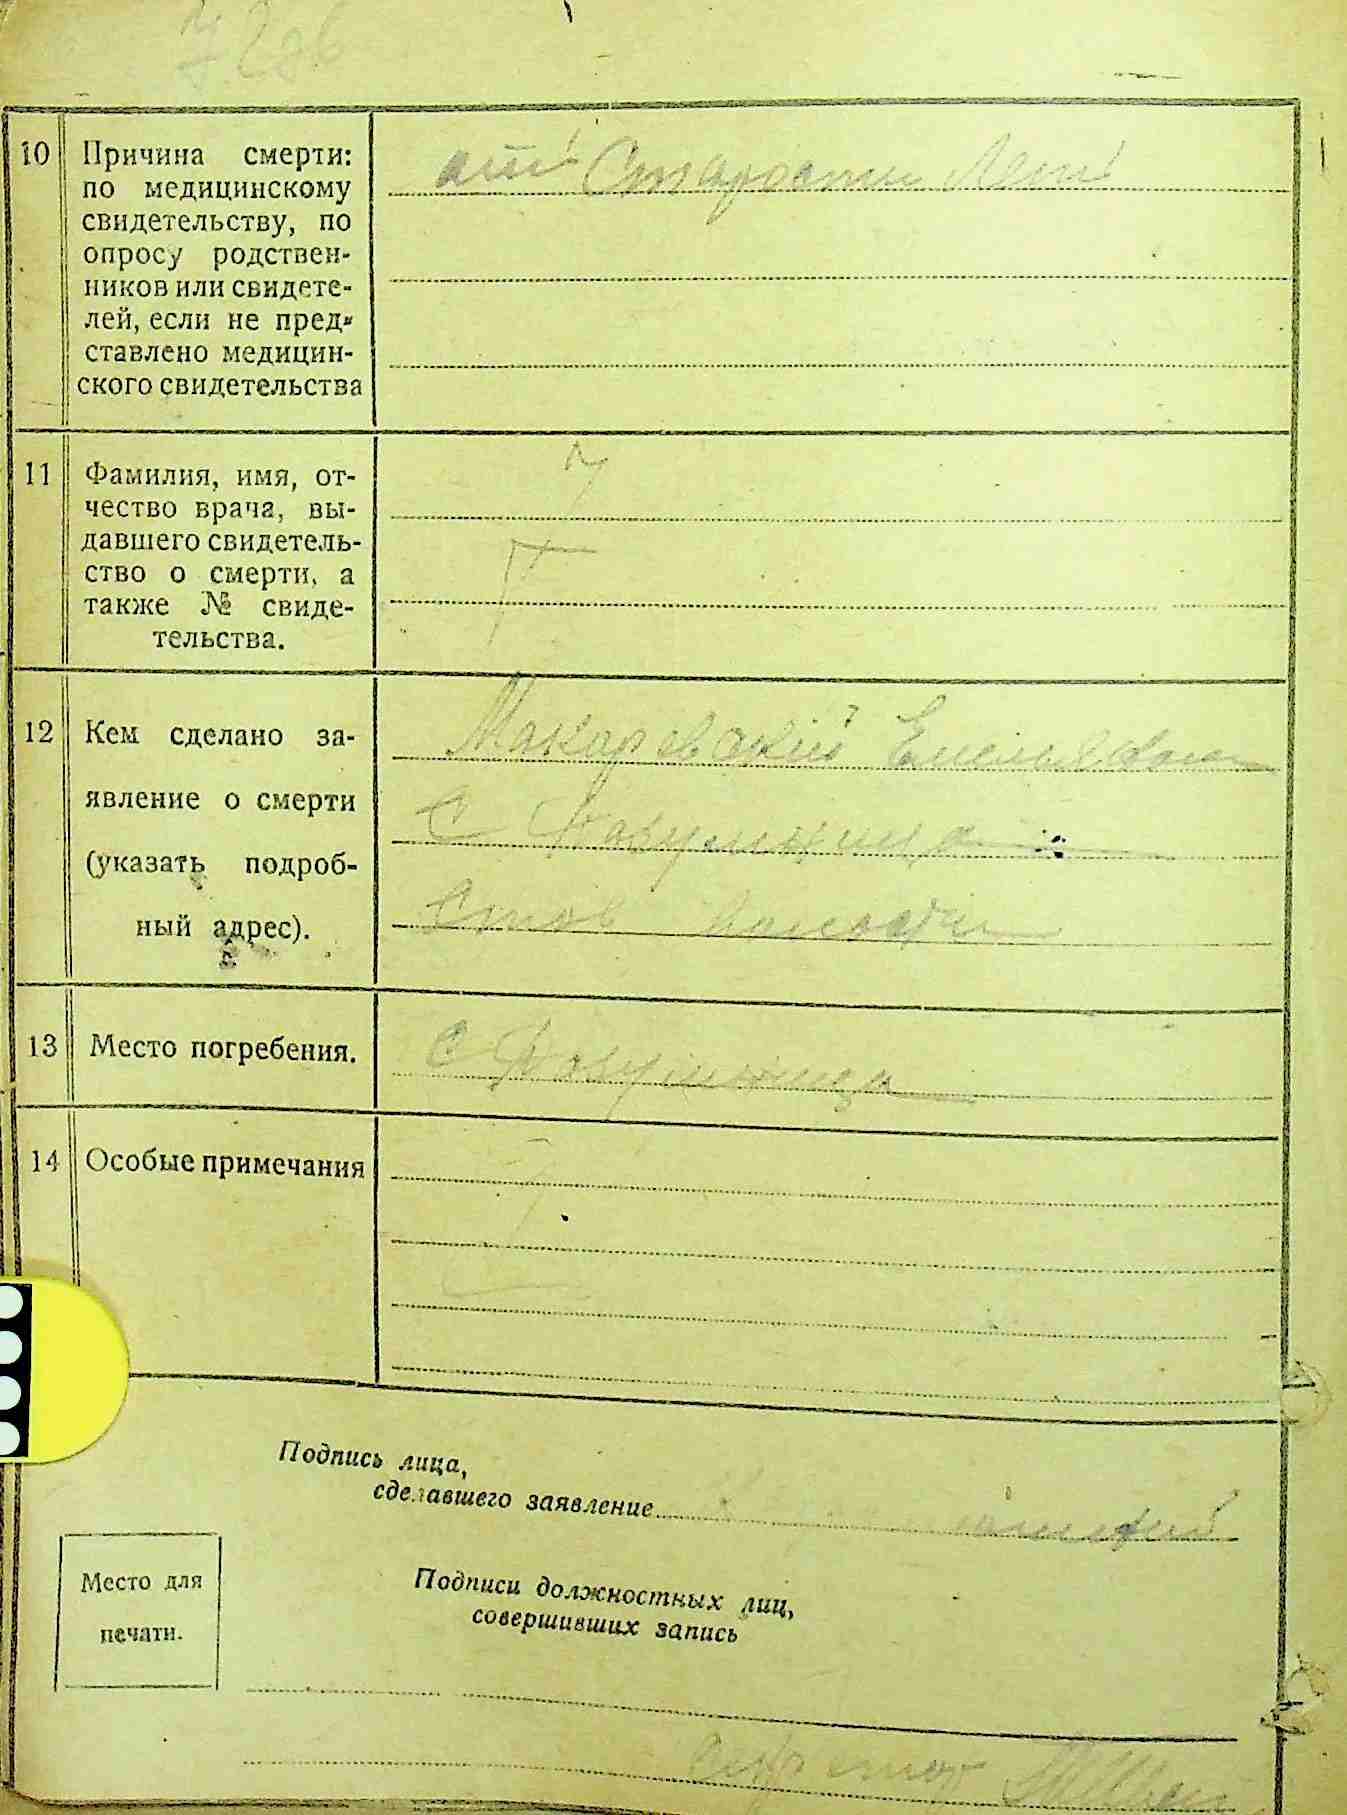 10
Причина смерти:
по медицинскому
свидетельству, по
опросу родствен-
ников или свидете-
лей, если не пред-
ставлено медицин-
ского свидетельства
от Старости Лет
11
Фамилия, имя, от-
чество врача, вы-
давшего свидетель-
ство о смерти, а
также № свиде-
тельства.
12
Кем сделано за-
явление о смерти
(указать подроб-
ный адрес).
Макаревский
С
13
Место погребения.
С
14
Особые примечания
Подпись лица,
сделавшего заявление
Место для
печати.
Подписи должностных лиц,
совершивших запись